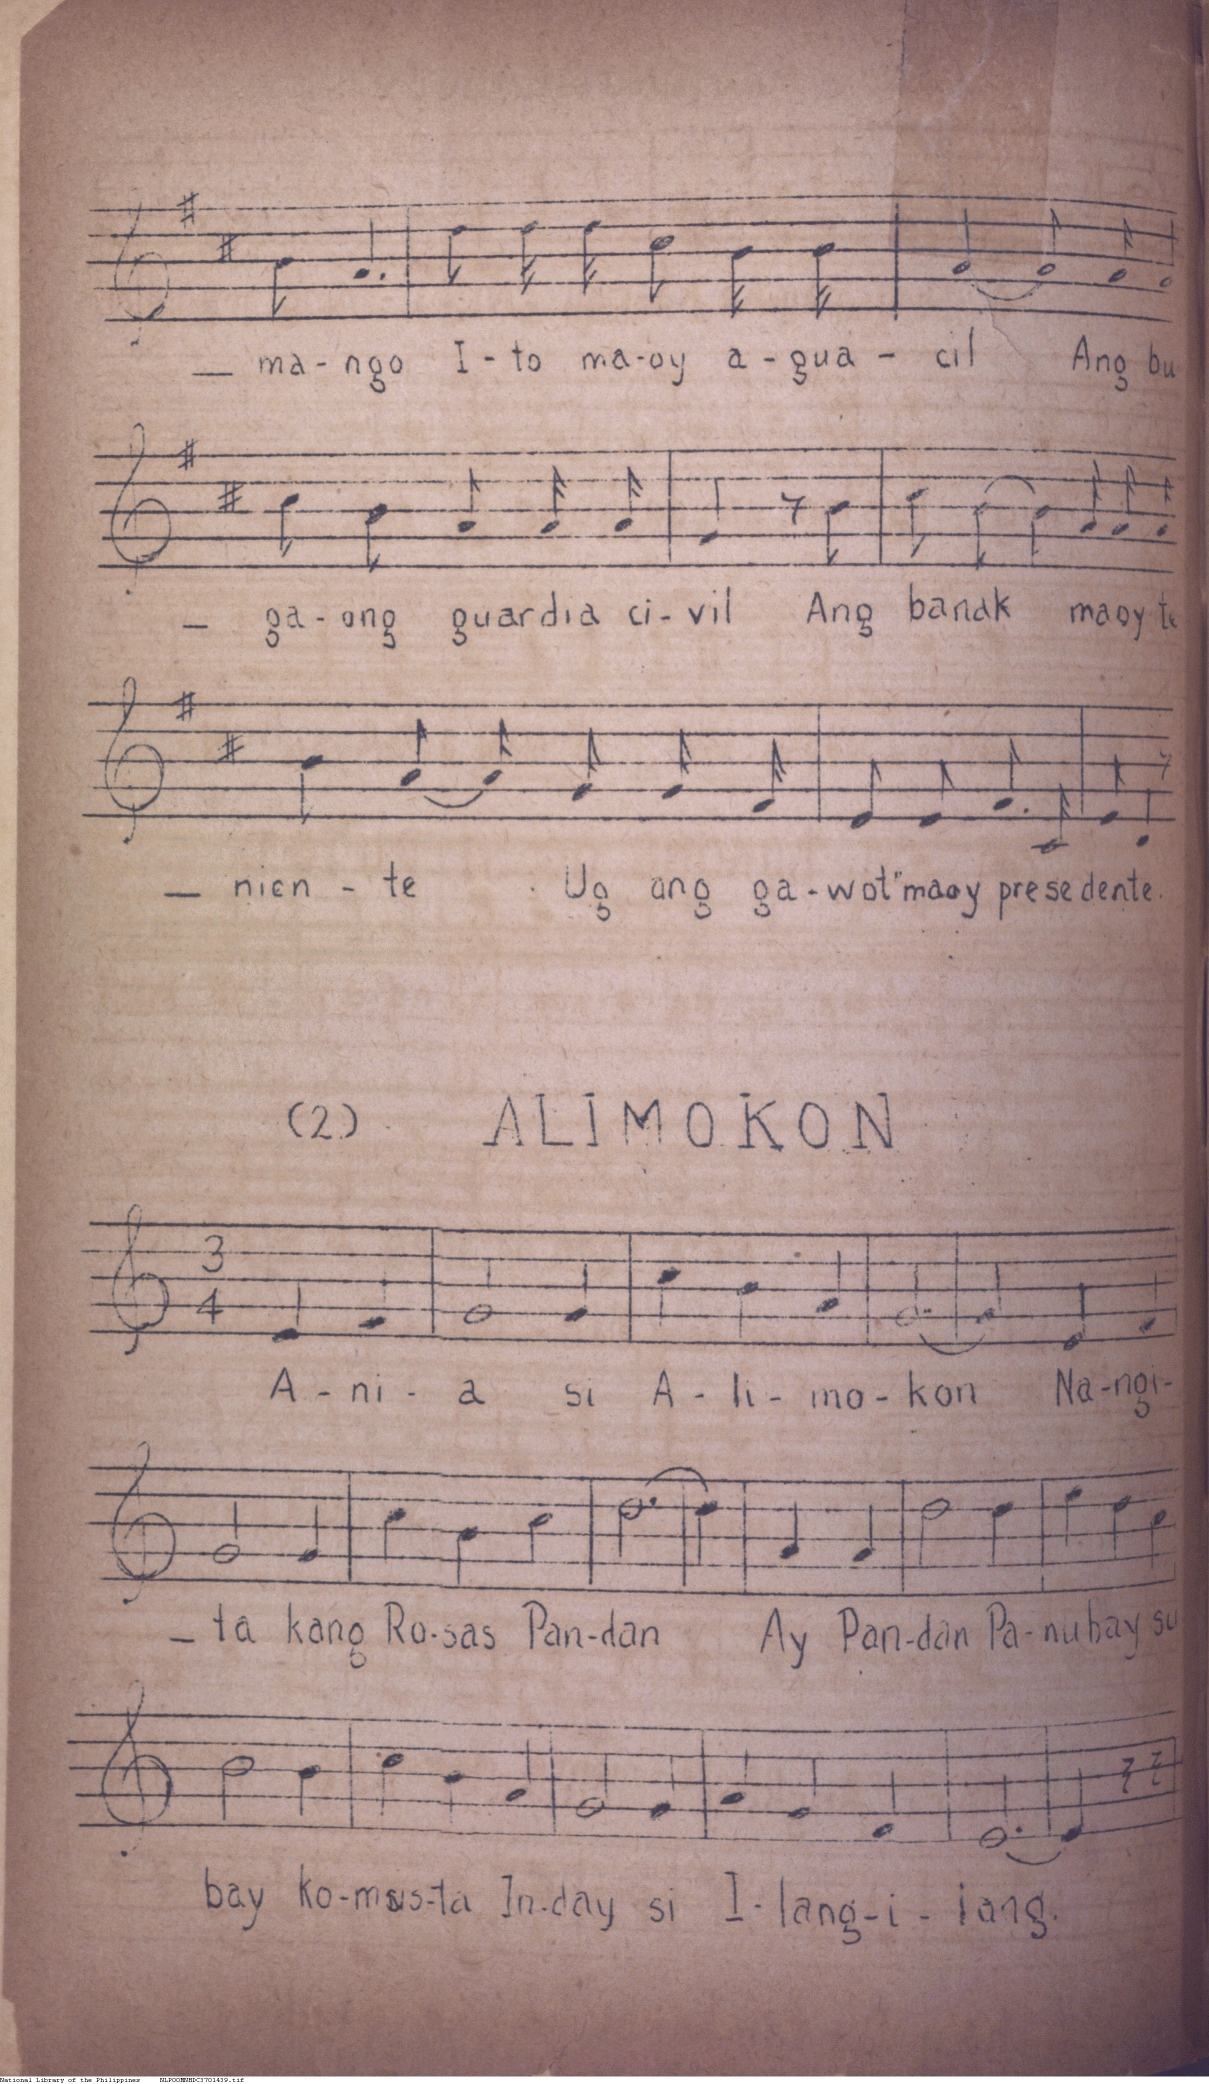 _ ma-ngo I-to ma-oy a-gua-cil Ang bu
_ ga-ong guardia ci-vil Ang banak maoy te
_ nien-te Ug ang ga-wot" maoy presedente.
(2) ALIMOKON
3
4
A-ni-a si A-li-mo-kon Na-ngi-
_ ta kang Ro-sas Pan-dan Ay Pan-dan Pa-nubay su
bay ko-mus-ta In-day si I-lang-i-lang.
National Library of the Philippines NLPOOMNHDC3701439.tif